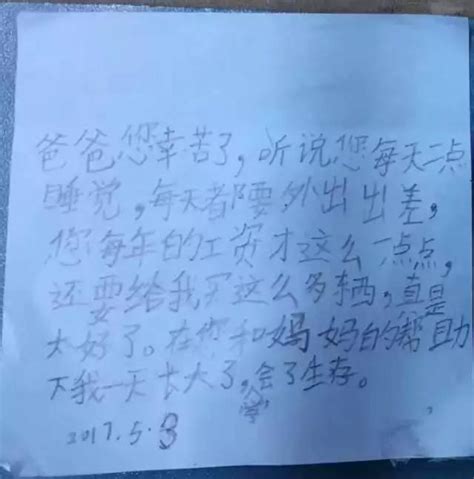 爸爸您辛苦了,听说您每天二点
睡觉,每天都要外出出差,
您每年的工资才这么一点点,
还要给我买这么多东西,真是
太好了。在你和妈妈的帮助
下我一天长大了,学会了生存。
2017.5.3